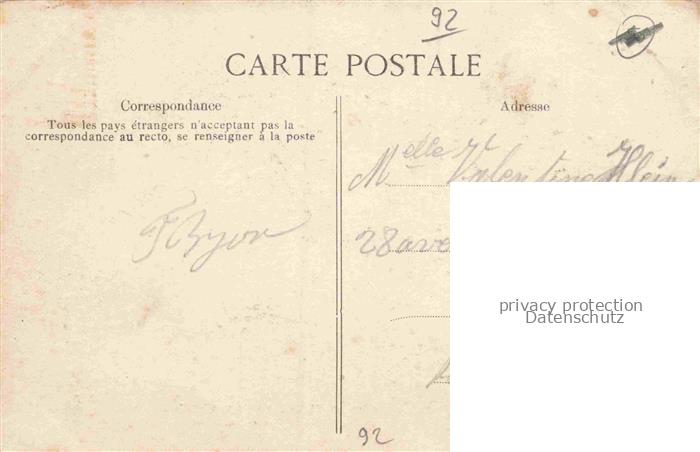 92
CARTE POSTALE
Correspondance
Tous les pays étrangers n'acceptant pas la
correspondance au recto, se renseigner à la poste
Adresse
Melle Valentine Klein
28 ave
privacy protection
Datenschutz
92